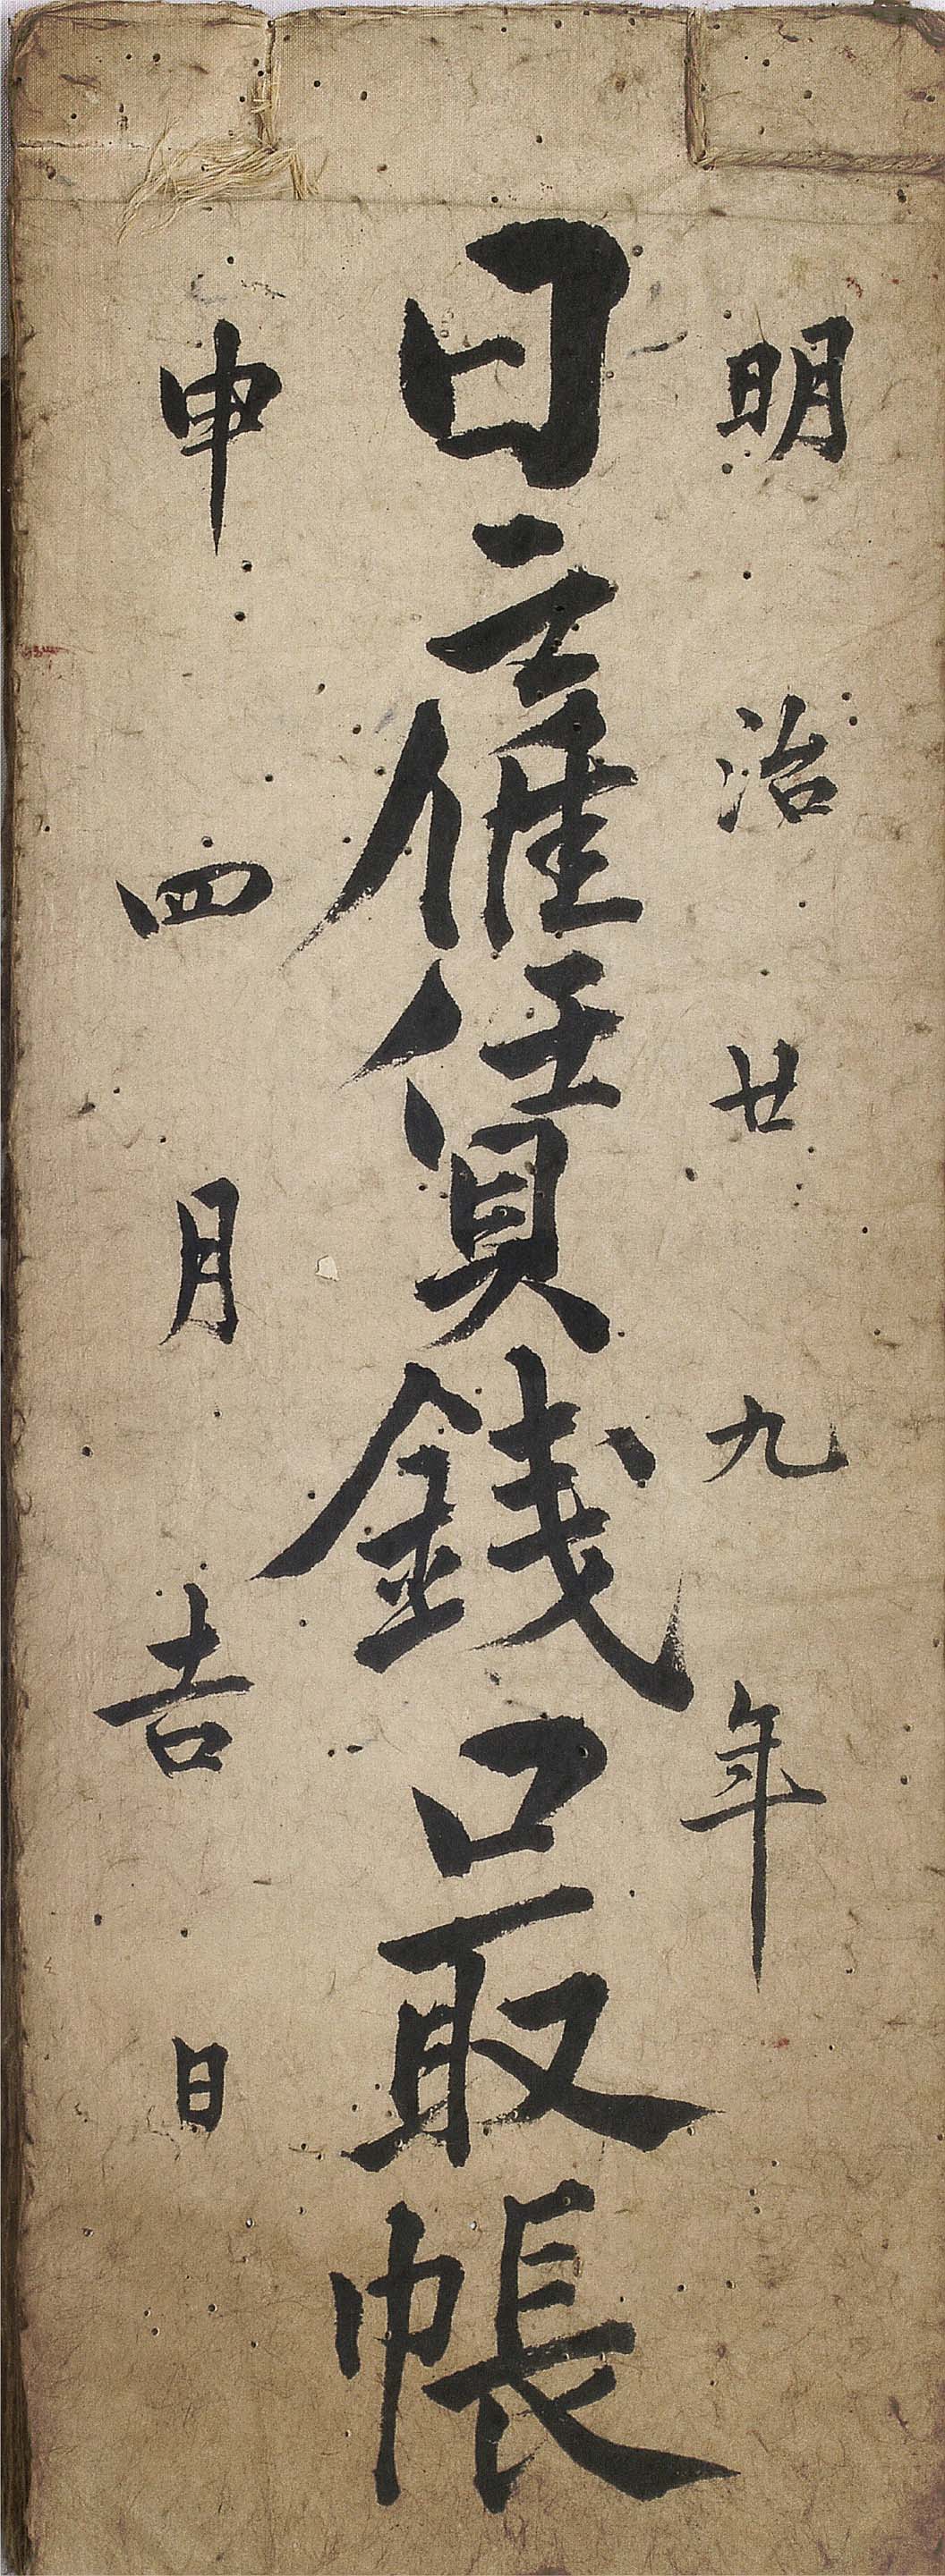 明治廿九年
日雇賃銭口取帳
申四月吉日